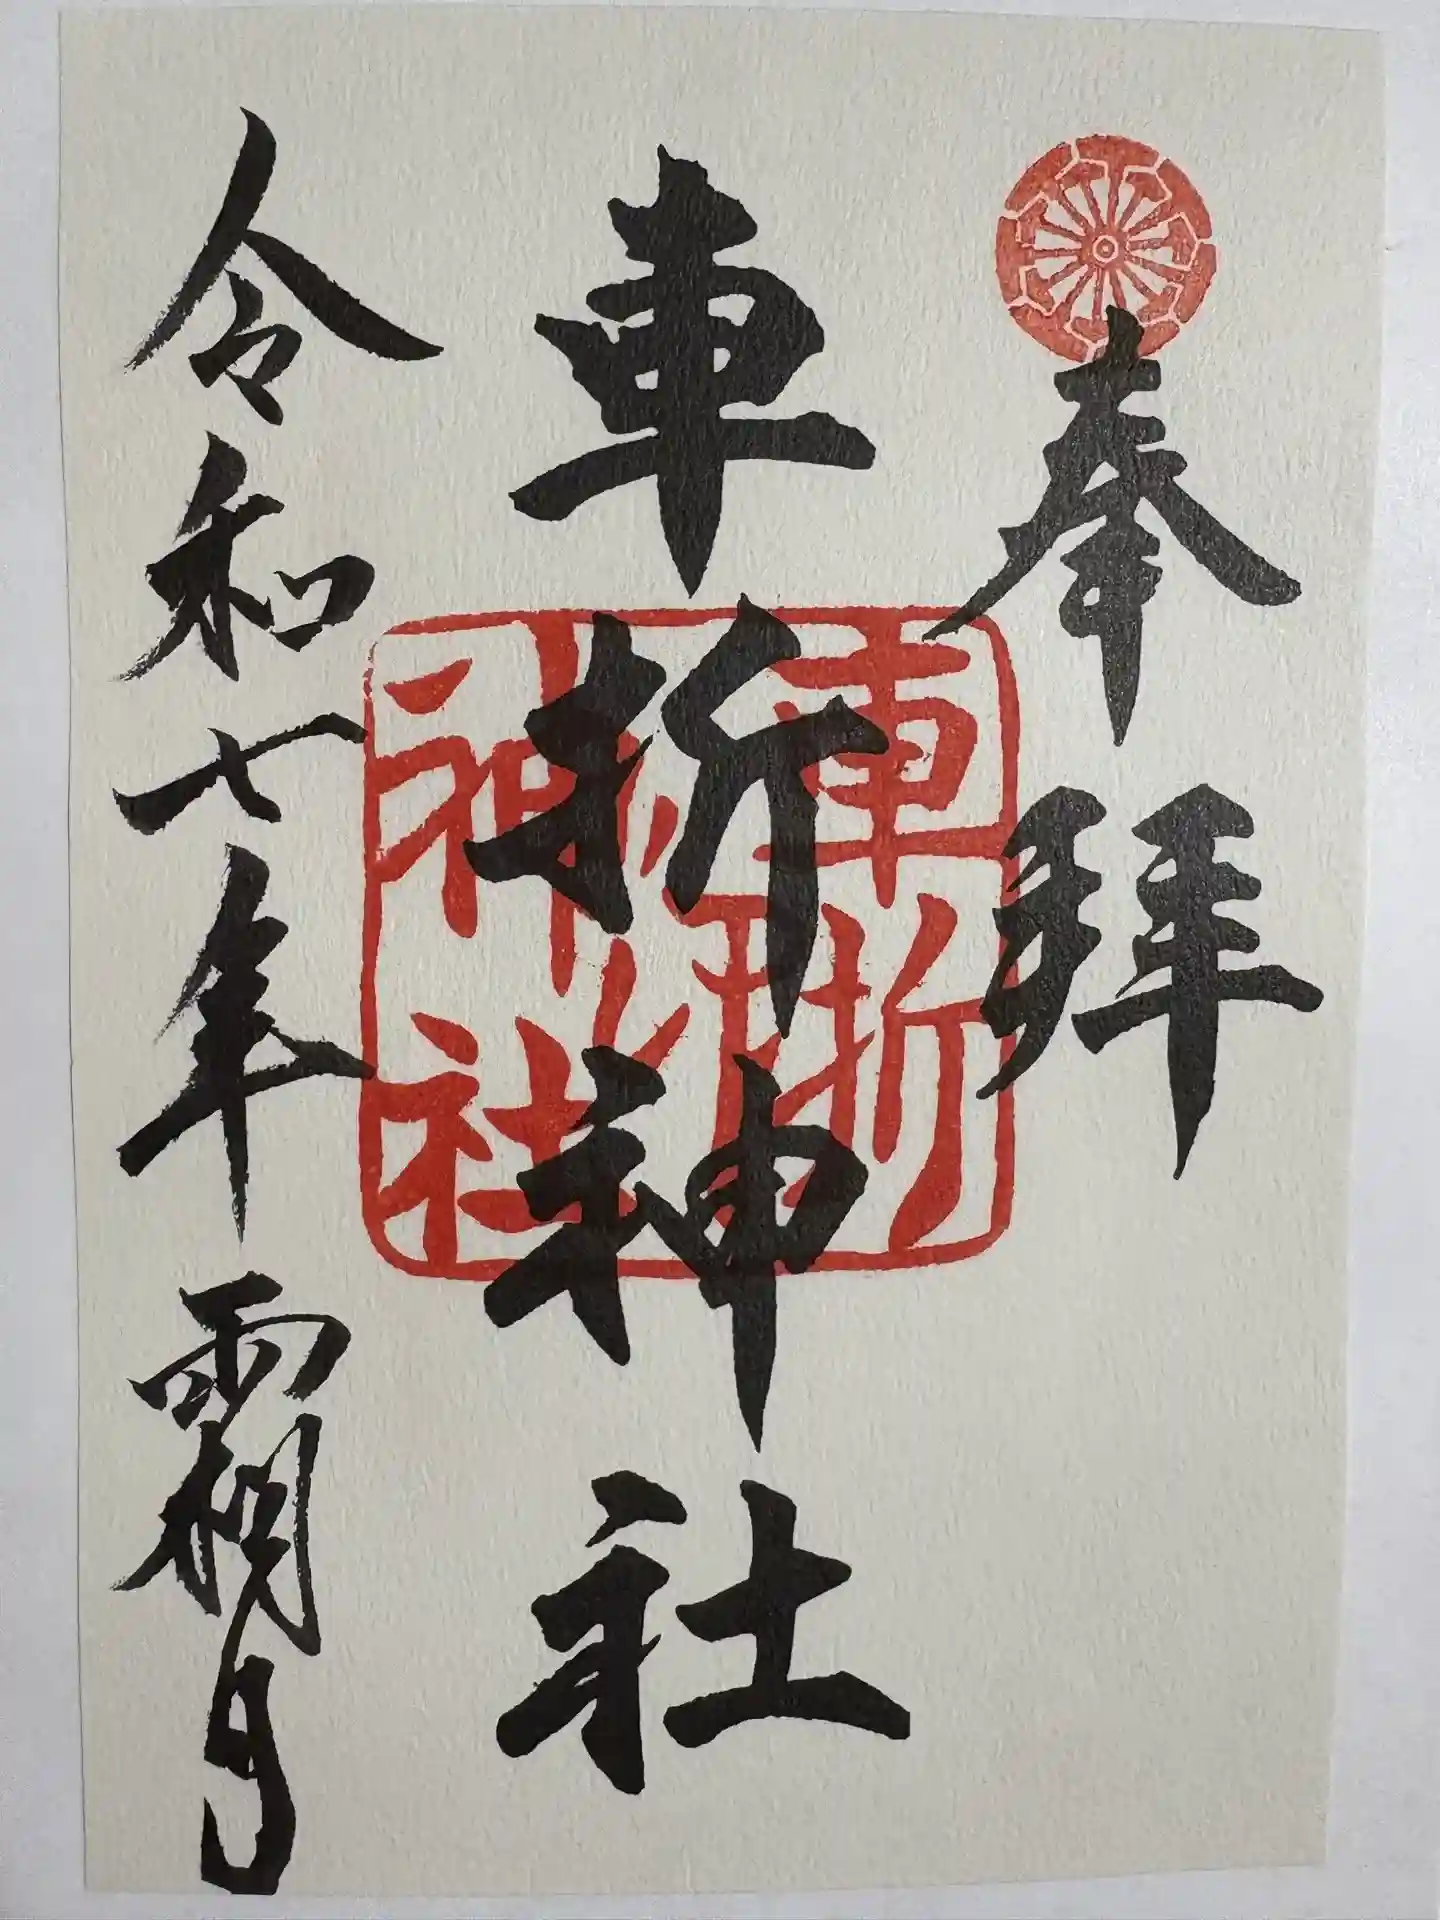 奉拝
車折神社
車折
神社
令和七年霜月